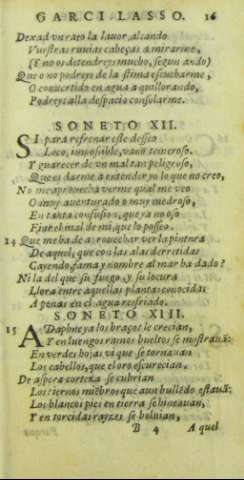 GARCI LASSO. 16
Dexad vn rato la lauor, alçando
Vuestras ruuias cabeças a mirarme,
(Y no os detendreys mucho, segun ando)
Que o no podreys de lastima escucharme,
O conuertido en agua aqui llorando,
Podreys alla despacio consolarme.
SONETO XII.
SI para refrenar este desseo
Loco, impossible, vano temeroso.
Y guarecer de vn mal tan peligroso,
Que es darme a entender yo lo que no creo,
No me aprouecha verme qual me veo
O muy auenturado o muy medroso,
En tanta confusion, que ya no oso
Fiar el mal de mi, que lo posseo.
14 Que me ha de aprouechar ver la pintura
De aquel, que con las alas derretidas
Cayendo, fama y nombre al mar ha dado?
Ni la del que su fuego y su locura
Llora entre aquellas plantas conocidas
A penas en el agua resfriado.
SONETO XIII.
15 A Daphne ya los braços le crecian,
Y en luengos ramos bueltos se mostrauã:
En verdes hojas vi que se tornauan
Los cabellos, que el oro escurecian.
De aspera corteza se cubrian
Los tiernos miẽbros que aun bulliẽdo estauã:
Los blancos pies en tierra se hincauan,
Y en torcidas rayzes se boluian,
B 4 A quel